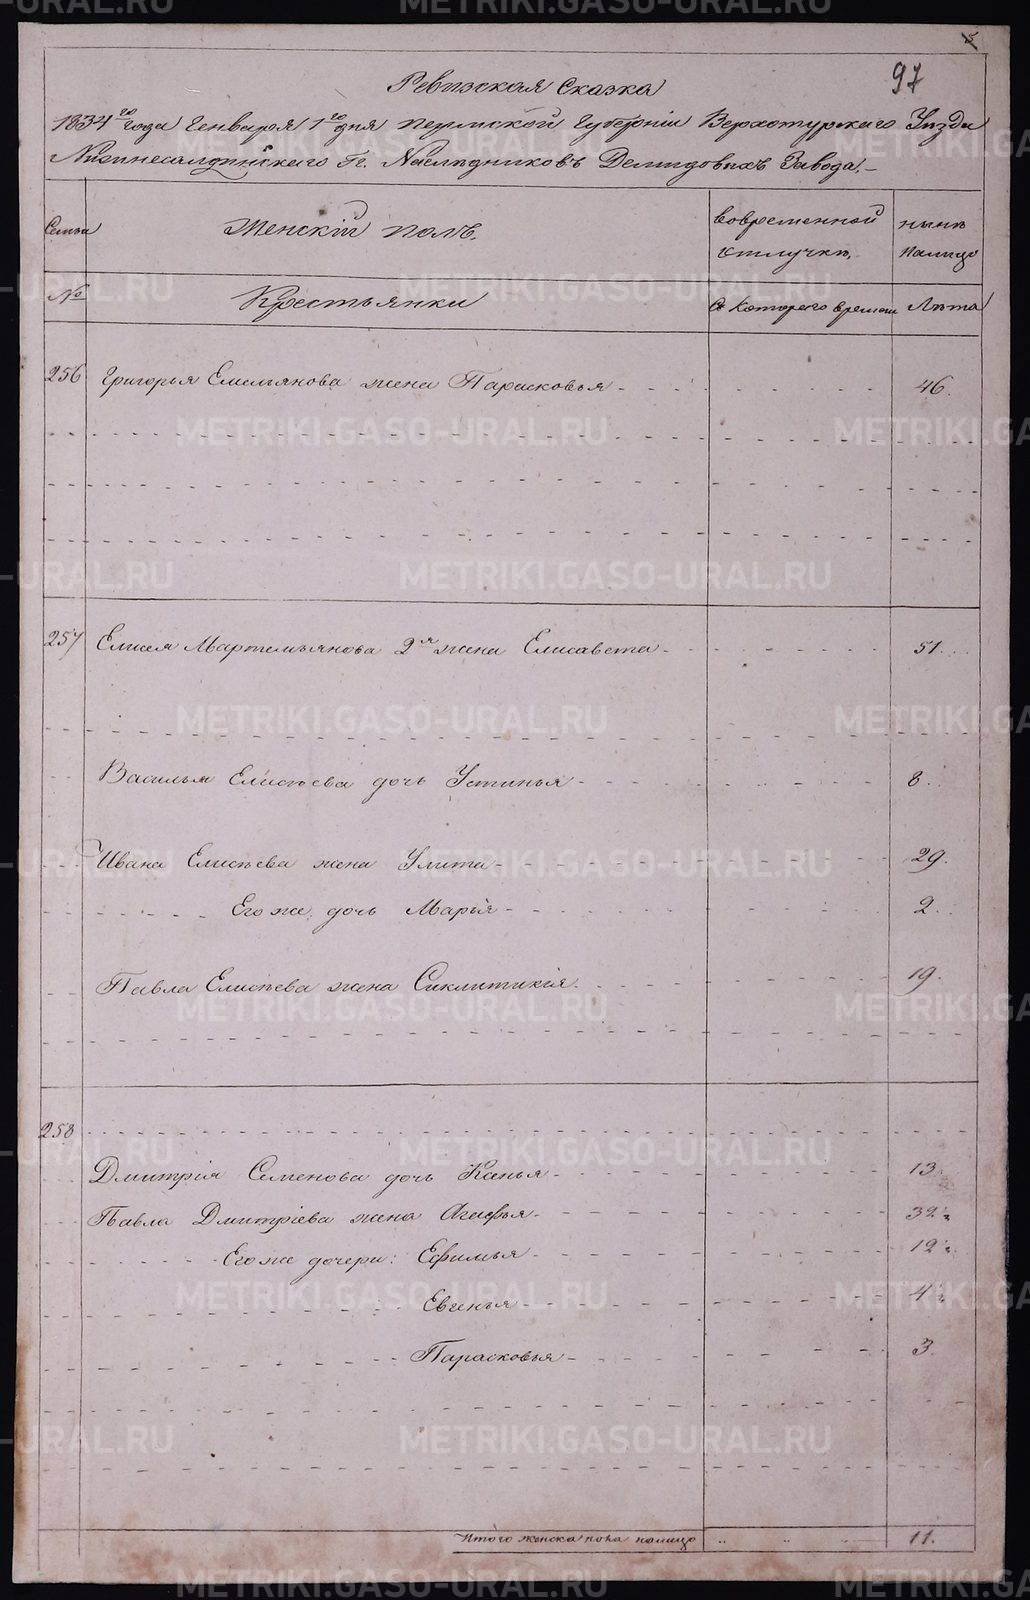 97
Ревизская Сказка
1834го года Генваря 1го дня Пермской Губерніи Верхотурского Уѣзда
Нижнесалдинского Гг. Наслѣдниковъ Демидовыхъ Завода.
Семьи
Женскій полъ.
во временной отлучкѣ,
нынѣ налицо
№
Крестьянки
Съ Которого времени
Лѣта
256 Григорья Емельянова жена Парасковья 46.
257 Елисея Мартемьянова 2я жена Елисавета 51.
Василья Елисѣева дочь Устинья 8.
Ивана Елисѣева жена Улита 29.
Его же дочь Марья 2.
Павла Елисѣева жена Сиклитикія. 19.
258
Дмитрія Семенова дочь Ксенья 13
Павла Дмитріева жена Агафья 32½
Его же дочери: Ефимья 12½
Евгенья 4½
Парасковья 3
Итого женска пола налицо 11.
METRIKI.GASO-URAL.RU